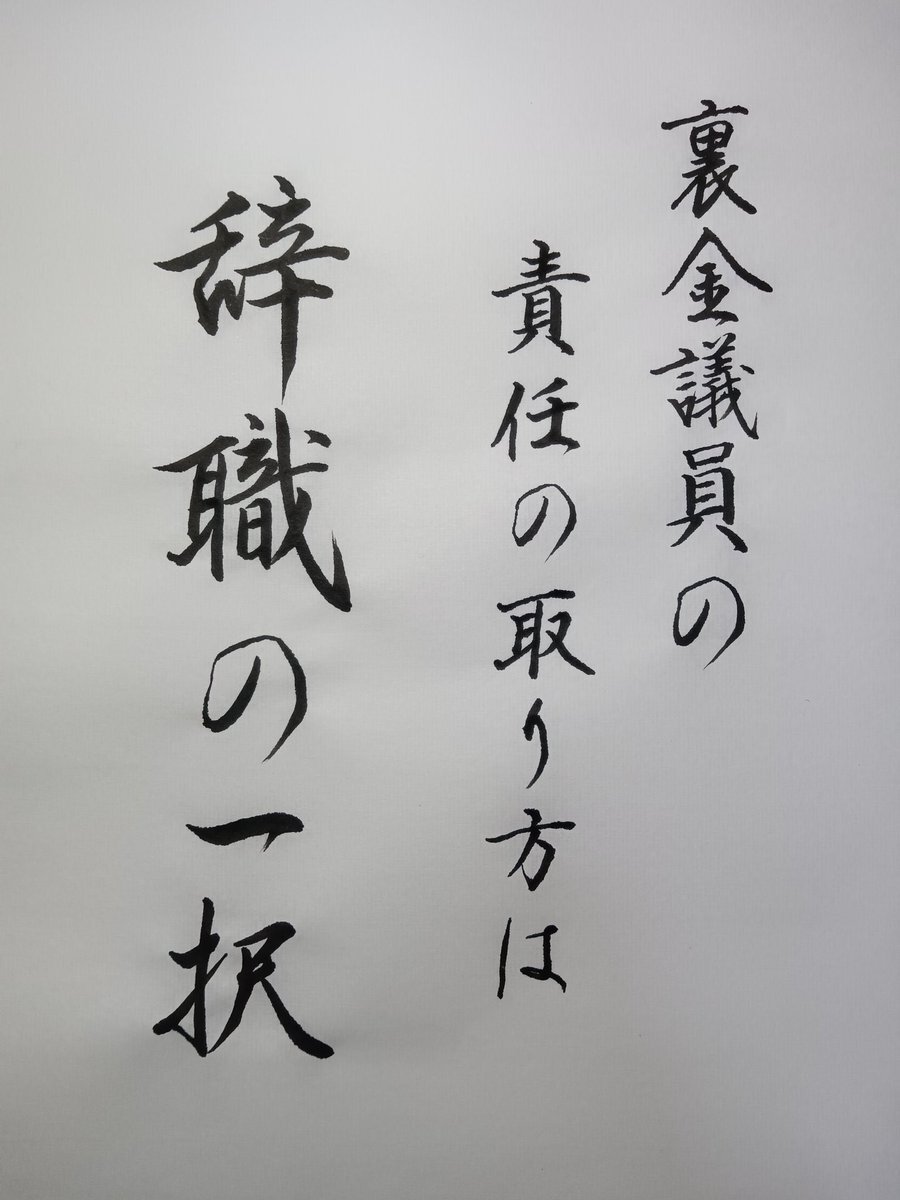 裏金議員の
責任の取り方は
辞職の一択